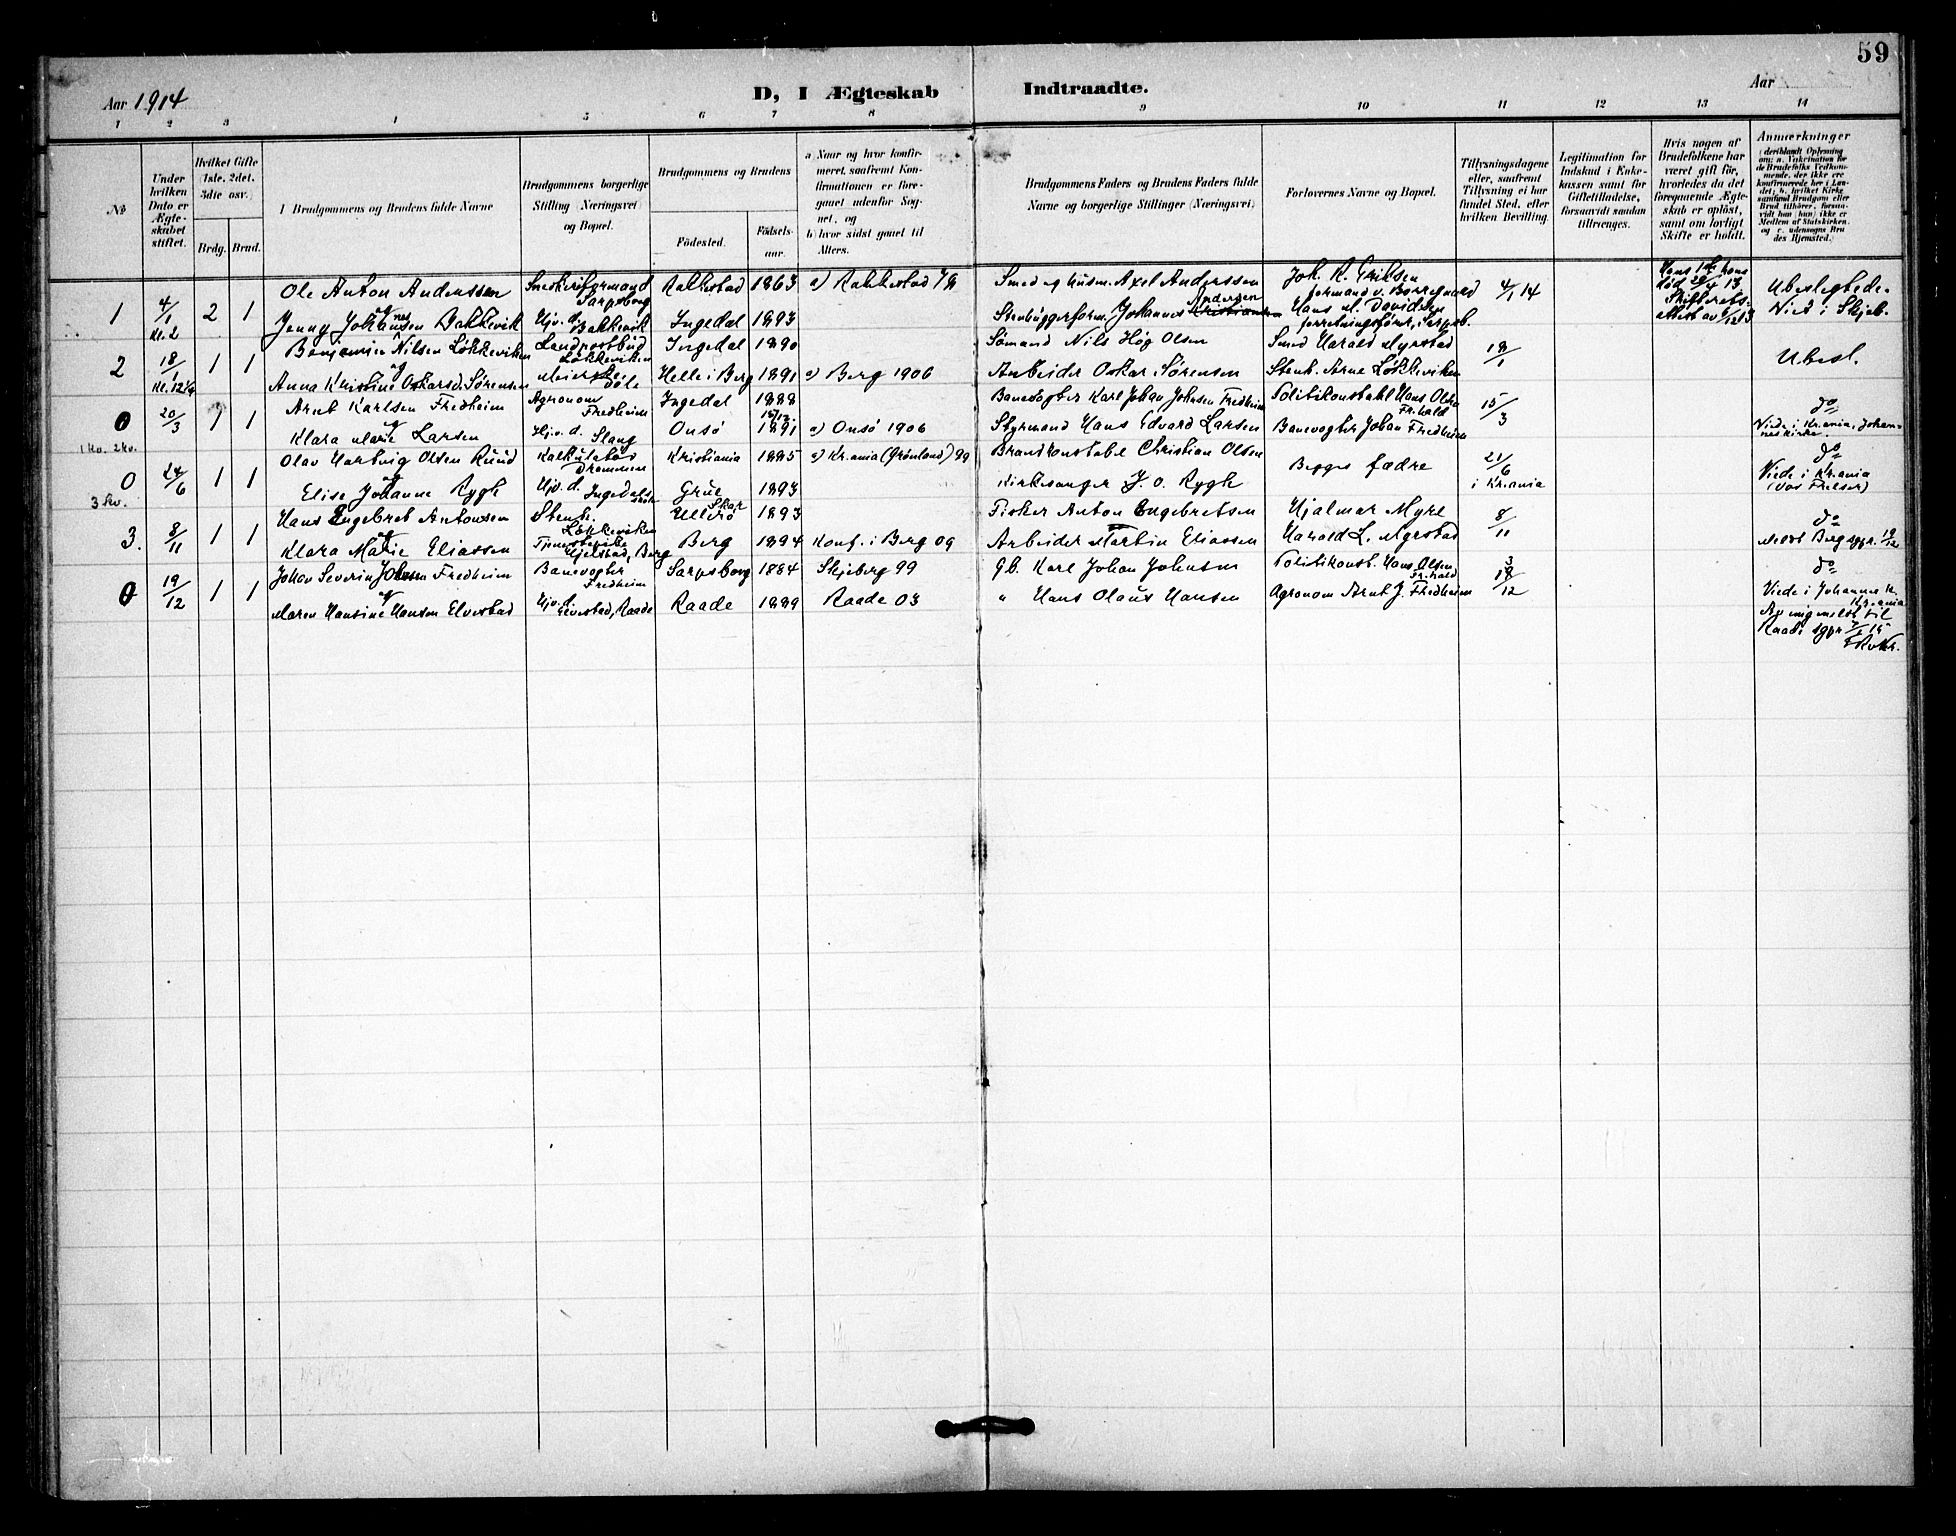 59
Aar 1914
D, I Ægteskab Indtraadte.
Aar
1 2 3 4 5 6 7 8 9 10 11 12 13 14
№
Under hvilken Dato er Ægteskabet stiftet.
Hvilket Gifte (1ste, 2det, 3die osv.)
Brdg. Brud.
Brudgommens og Brudens fulde Navne
Brudgommens borgerlige Stilling (Næringsvei) og Bopæl.
Brudgommens og Brudens
Fødested.
Fødselsaar.
a) Naar og hvor konfirmeret, saafremt Konfirmationen er foregaaet udenfor Sognet, og
b) hvor sidst gaaet til Alters.
Brudgommens Faders og Brudens Faders fulde Navne og borgerlige Stillinger (Næringsvei)
Forlovernes Navne og Bopæl.
Tillysningsdagene eller, saafremt Tillysning ei har fundet Sted, efter hvilken Bevilling.
Legitimation for Indskud i Enkekassen samt for Giftetilladelse, forsaavidt saadan tiltrænges.
Hvis nogen af Brudefolkene har været gift før, hvorledes da det foregaaende Ægteskab er opløst, samt om lovligt Skifte er holdt.
Anmærkninger
(deriblandt Oplysning om: a. Vakcination for de Brudefolks Vedkommende, der ikke ere konfirmerede her i Landet; b. hvilket Kirkesamfund Brudgom eller Brud tilhører, forsaavidt han (hun) ikke er Medlem af Statskirken, og c. udensogns Brudes Hjemsted.)
1 4/1 Kl. 2 2 1 Ole Anton Anderssen Snekkerformand Sarpsborg Rakkestad 1863 a) Rakkestad 78 Smed og husm. Axel Anderssen Joh. R. Eriksen formand v. Borregaard 4/1 14 Hans 1ste kone død 20/4 13 Skifterets attest av 9/12 13 Ubeslegtede.
og Jenny Johansen Bakkevik Hjv. d. Bakkevik Ingedal 1893 Stenhuggerform. Johannes Andersen Kristiansen Hans M. Davidsen forretningsfører, Sarpsb. Viet i Skjeb.
2 18/1 Kl. 12 1/4 1 1 Benjamin Nilsen Løkkeviken Landpostbud Løkkeviken Ingedal 1890 Sømand Nils Høg Olsen Smed Harald Myrstad 18/1 Ubesl.
og Anna Kristine Oskarsd. Sørensen Meierske Døle Helle i Berg 1891 a) Berg 1906 Arbeider Oskar Sørensen Stenh. Arne Løkkeviken
0 20/3 1 1 Arnt Karlsen Fredheim Agronom Fredheim Ingedal 1888 Banevogter Karl Johan Johnsen Fredheim Politikonstabel Hans Olsen Fr.hald 15/3 do
1 kv. 2 kv. og Klara Marie Larsen Hjv. d. Slang Onsø 1891 a) Onsø 1906 Styrmand Hans Edvard Larsen Banevogter Johan Fredheim Viede i Kr.ania, Johanneskirke.
0 24/6 1 1 Olav Hartvig Olsen Ruud Kalkulatør Drammen Kristiania 1885 a) Kr.ania (Grønland) 99 Brandkonstabel Christian Olsen Begges fædre 21/6 i Kr.ania do
3 kv. og Elise Johanne Rygh Hjv. d. Ingedal Grue 1893 Kirkesanger J. O. Rygh Viede i Kr.ania (Vor Frelser)
3. 8/11 1 1 Hans Engebret Antonsen Stenh. Løkkeviken Ullerø Skjær 1893 Fisker Anton Engebretsen Hjalmar Myre 8/11 do
og Klara Marie Eliassen Tjenestepike Hjelstad, Berg Berg 1894 Konf. i Berg 09 Arbeider Martin Eliassen Harald L. Myrstad Meldt Berg sgpr. 19/12
0 19/12 1 1 Johan Severin Johnsen Fredheim Banevogter Fredheim Sarpsborg 1884 Skjeberg 99 Gb. Karl Johan Johnsen Politikonst. Hans Olsen Fr.hald 13/12 do
og Maren Hansine Hansen Elvestad Hjv. d. Elvestad, Raade Raade 1889 Raade 03 " Hans Olaus Hansen Agronom Arnt J. Fredheim Viede i Johannes k. Kr.ania
Raade sgpr 7/1 15